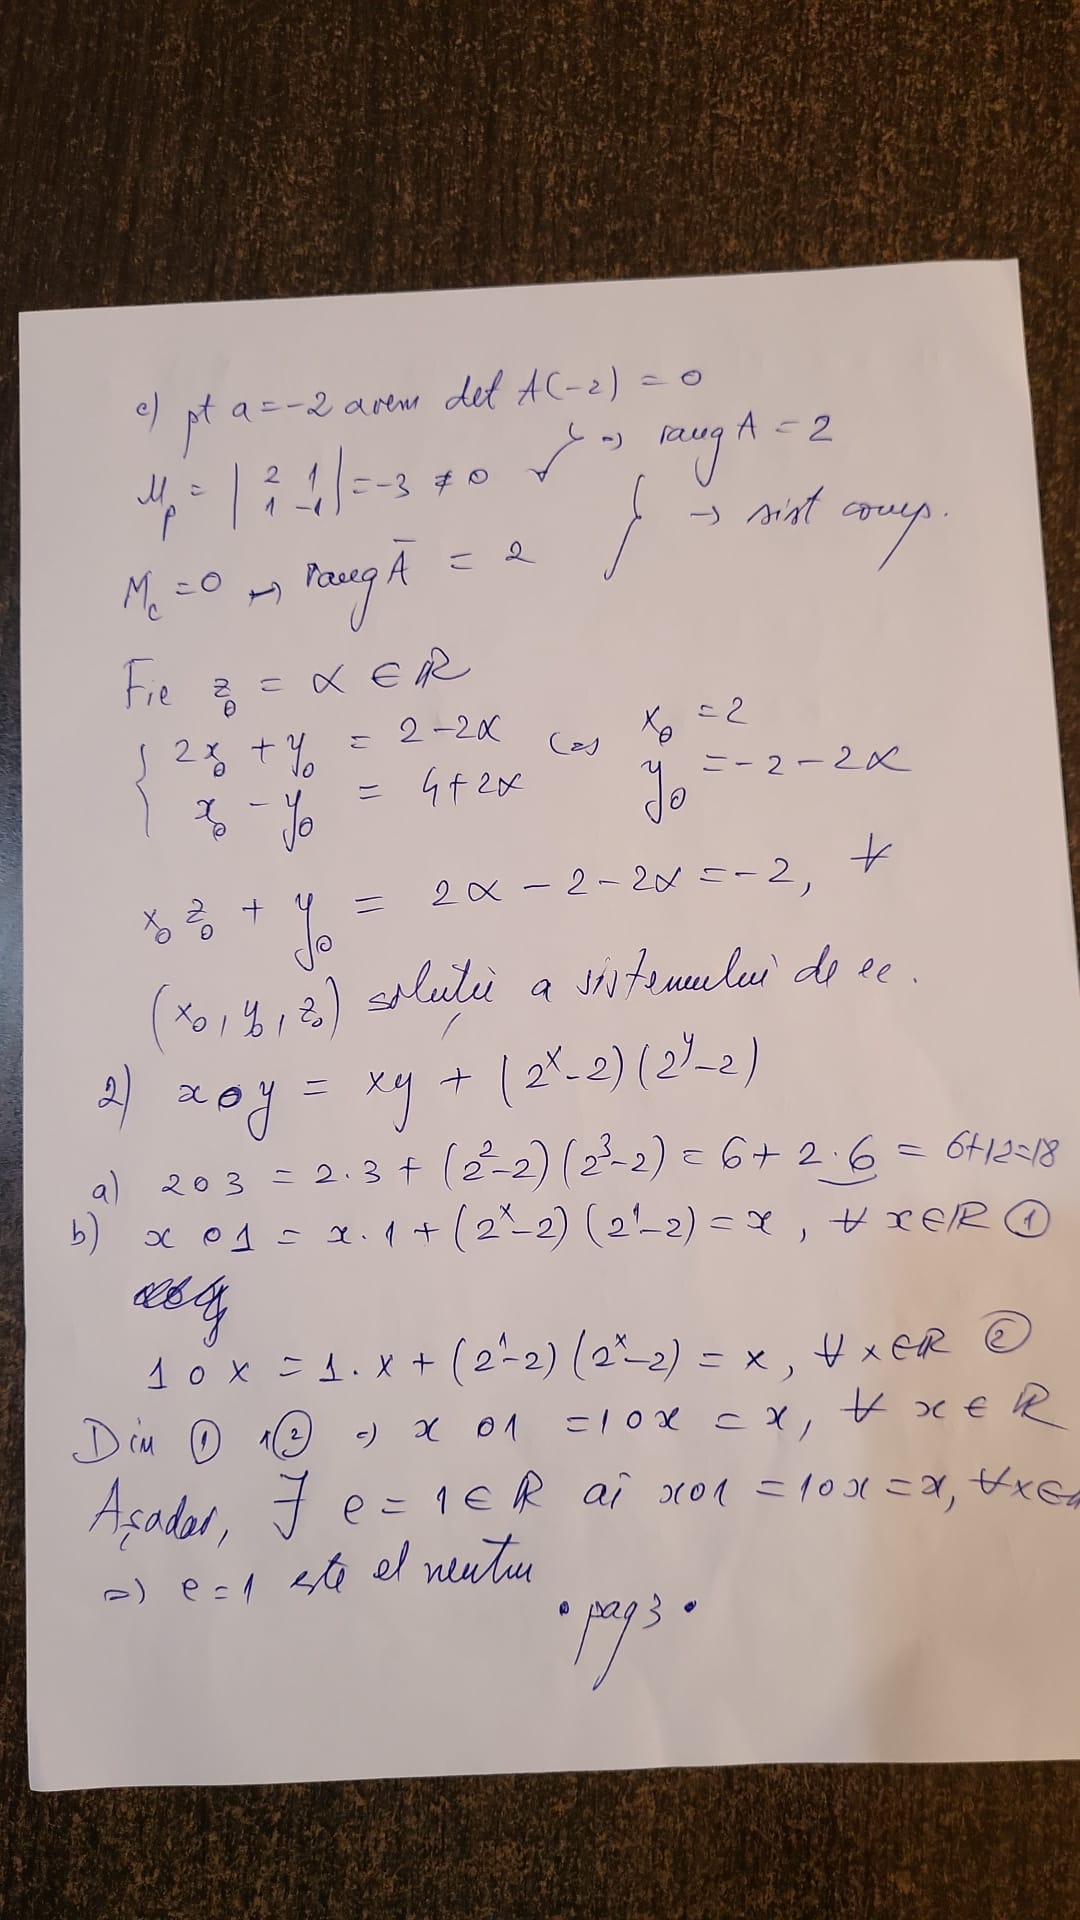 c) pt a=-2 avem det A(-2) = 0
M_p = | 2 1 / 1 -1 | = -3 ≠ 0 } => rang A = 2
M_c = 0 => rang Ā = 2 } → sist comp.
Fie z₀ = α ∈ ℝ
{ 2x₀ + y₀ = 2-2α <=> x₀ = 2
x₀ - y₀ = 4+2α y₀ = -2-2α
x₀z₀ + y₀ = 2α - 2 - 2α = -2, ∀
(x₀, y₀, z₀) soluție a sistemului de ec.
2) x∘y = xy + (2^x-2)(2^y-2)
a) 2∘3 = 2·3 + (2²-2)(2³-2) = 6 + 2·6 = 6+12=18
b) x∘1 = x·1 + (2^x-2)(2¹-2) = x, ∀ x∈ℝ ①
1∘x = 1·x + (2¹-2)(2^x-2) = x, ∀ x∈ℝ ②
Din ① ② => x∘1 = 1∘x = x, ∀ x∈ℝ
Așadar, ∃ e=1∈ℝ aî x∘1 = 1∘x = x, ∀x∈
=> e=1 este el neutru
• pag 3 •